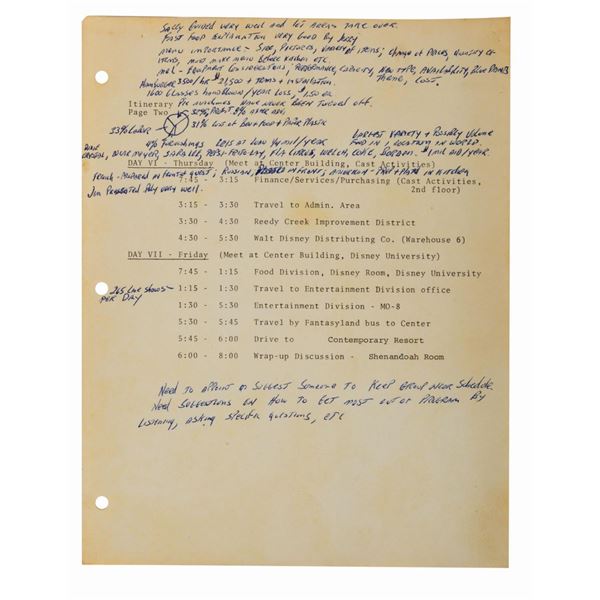 Sally Guided very well and let areas take over.
First Food explanation very good by
menu importance - Size, Pictures, Variety of items; change of Prices, Quality of
items, must make menu before kitchen etc.
Equipment Considerations; Performance, Capacity, New type, Availability, Blue Prints
Hamburger 3500/hr $21,500 + terms + installation Theme, Cost.
1600 Glasses hand blown/year Loss, $1.50 ea
Itinerary Pic machines have never been turned off.
Page Two 32% Profit 8% other are,
33% Labor 31% Cost of Beer Food + Paper Plastic
4% Furnishings Lets at Loan 1/4 mill/year Largest Variety + Possibly Volume
Food in 1 Location in World.
Oscar Meyer, Sara Lee, Pepsi-Frito Lay, Fla Citrus, Welch, Coke, Borden. $1 mil aid/year
DAY VI - Thursday (Meet at Center Building, Cast Activities)
French - Prepared in front of guest; Russian, in front; American - Prep + Plate in Kitchen
7:45 - 3:15 Finance/Services/Purchasing (Cast Activities,
2nd floor)
Jim Presented Pday very well.
3:15 - 3:30 Travel to Admin. Area
3:30 - 4:30 Reedy Creek Improvement District
4:30 - 5:30 Walt Disney Distributing Co. (Warehouse 6)
DAY VII - Friday (Meet at Center Building, Disney University)
7:45 - 1:15 Food Division, Disney Room, Disney University
265 Live shows - PER DAY
1:15 - 1:30 Travel to Entertainment Division office
1:30 - 5:30 Entertainment Division - MO-8
5:30 - 5:45 Travel by Fantasyland bus to Center
5:45 - 6:00 Drive to Contemporary Resort
6:00 - 8:00 Wrap-up Discussion - Shenandoah Room
Need to appoint or suggest someone to keep group near schedule.
Need suggestions on how to get most out of program by
listening, asking specific questions, etc